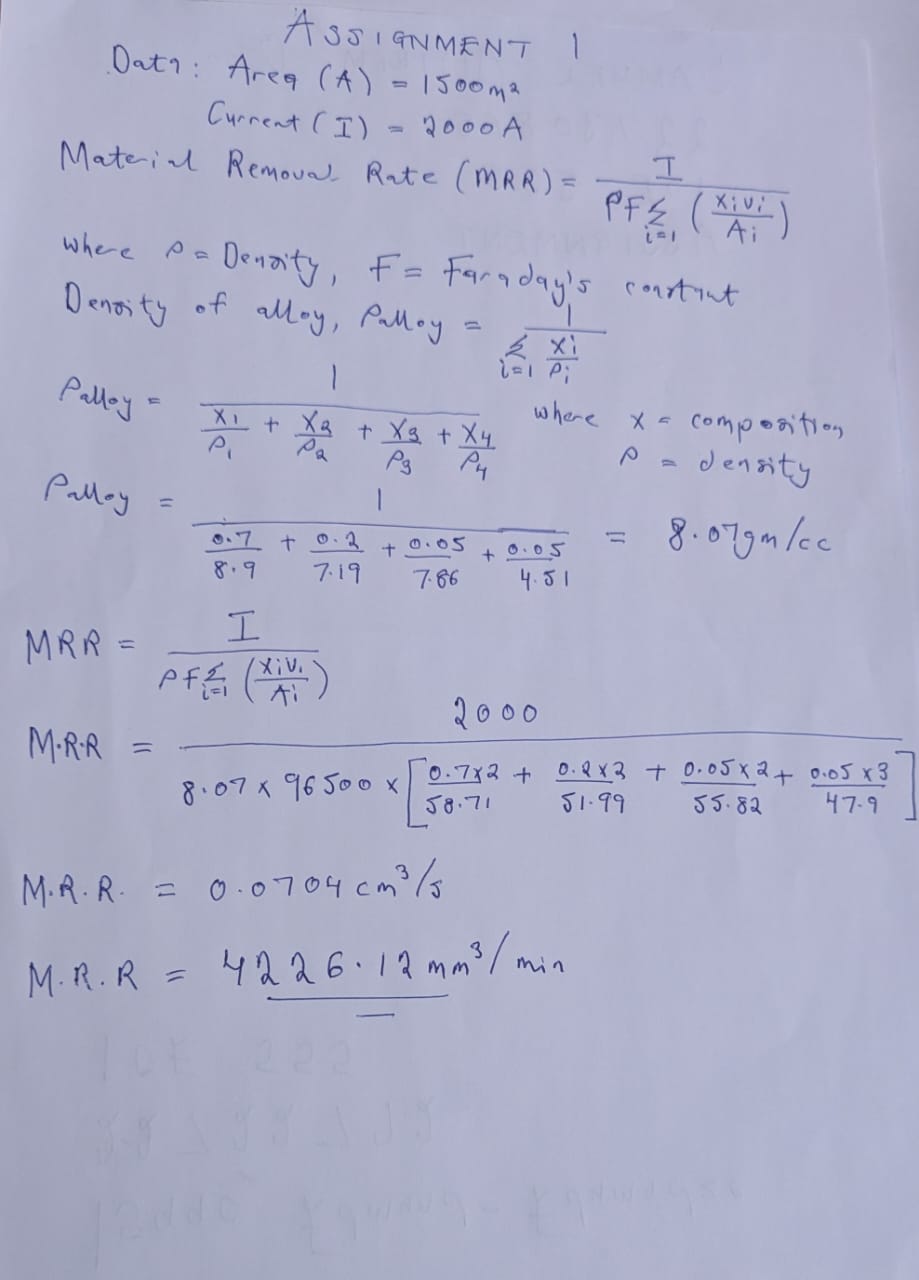 ASSIGNMENT 1
Data: Area (A) = 1500m²
Current (I) = 2000A
Material Removal Rate (MRR) = I / ρF Σ i=1 (XiVi / Ai)
where ρ = Density, F = Faraday's constant
Density of alloy, ρalloy = 1 / Σ i=1 Xi / ρi
ρalloy = 1 / X1/ρ1 + X2/ρ2 + X3/ρ3 + X4/ρ4 where x = composition
ρ = density
ρalloy = 1 / 0.7/8.9 + 0.2/7.19 + 0.05/7.86 + 0.05/4.51 = 8.07gm/cc
MRR = I / ρF Σ i=1 (XiVi / Ai)
M.R.R = 2000 / 8.07 x 96500 x [0.7x2/58.71 + 0.2x2/51.99 + 0.05x2/55.82 + 0.05x3/47.9]
M.R.R. = 0.0704 cm³/s
M.R.R = 4226.12 mm³/min